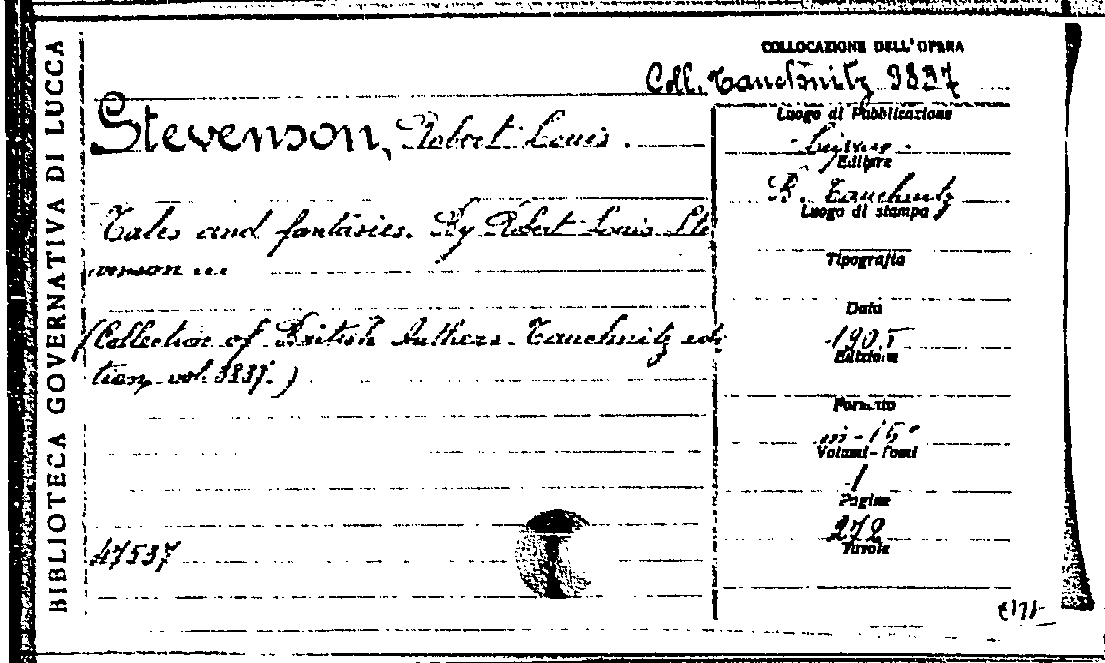 BIBLIOTECA GOVERNATIVA DI LUCCA
COLLOCAZIONE DELL'OPERA
Coll. Tauchnitz 3837
Stevenson, Robert Louis.
Tales and fantasies. By Robert Louis Ste
venson ...
(Collection of British Authors. Tauchnitz edi
tion, vol. 3837.)
47537
Luogo di Pubblicazione
Editore
B. Tauchnitz
Luogo di stampa
Tipografia
Data
1905
Edizione
Formato
in-16°
Volumi-Tomi
1
Pagine
272
Tavole